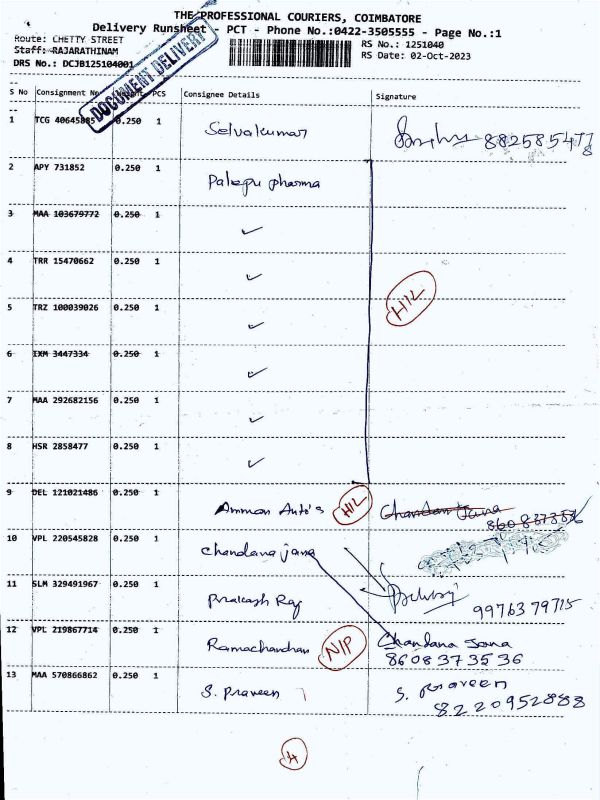 THE PROFESSIONAL COURIERS, COIMBATORE
Delivery Runsheet - PCT - Phone No.:0422-3505555 - Page No.:1
Route: CHETTY STREET
RS No.: 1251040
Staff: RAJARATHINAM
RS Date: 02-Oct-2023
DRS No.: DCJB125104001
DOCUMENT DELIVERY
S No Consignment No PCS Consignee Details Signature
1 TCG 0.250 1 Selvakumar
2 APY 731852 0.250 1 Palepu pharma
3 MAA 103679772 0.250 1
4 TRR 15470662 0.250 1
HIL
5 TRZ 100039026 0.250 1
6 IXM 3447334 0.250 1
7 MAA 292682156 0.250 1
8 HSR 2858477 0.250 1
9 DEL 121021486 0.250 1 Amman Auto's HIL Chandan Jana
10 VPL 220545828 0.250 1 Chandana jana
11 SLM 329491967 0.250 1 Prakash Raj
9976379715
12 VPL 219867714 0.250 1 Ramachandran NIP Chandana Jana
8608373536
13 MAA 570866862 0.250 1 S. Praveen S. Praveen
8220952888